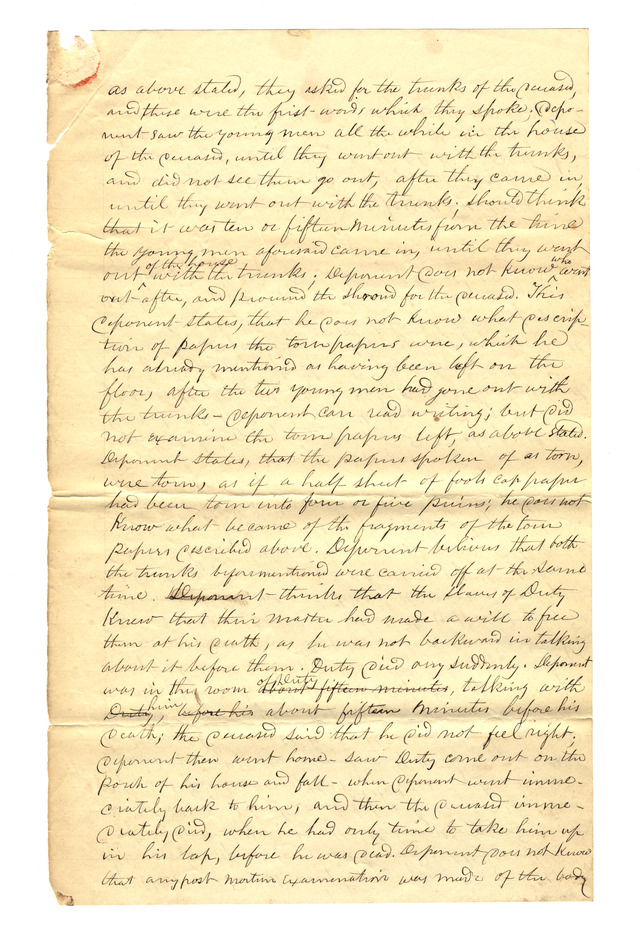 as above stated, they asked for the trunks of the deceased,
and these were the first words which they spoke; depo-
nent saw the young men all the while in the house
of the deceased, until they went out with the trunks,
and did not see them go out, after they came in,
until they went out with the trunks. Should think
that it was ten or fifteen minutes from the time
the young men aforesaid came in, until they went
out of the house with the trunks; Deponent does not know who went
out after, and procured the shroud for the deceased. This
deponent states, that he does not know what descrip-
tion of papers the torn papers were, which he
has already mentioned as having been left on the
floor, after the two young men had gone out with
the trunks – deponent can read writing; but did
not examine the torn papers left, as above stated.
Deponent states, that the papers spoken of as torn,
were torn, as if a half sheet of fools cap paper
had been torn into four or five pieces; he does not
know what became of the fragments of the torn
papers described above. Deponent believes that both
the trunks beforementioned were carried off at the same
time. Deponent thinks that the slaves of Duty
knew that their master had made a will to free
them at his death, as he was not backward in talking
about it before them. Duty died very suddenly. Deponent
was in the room of Duty about fifteen minutes, talking with
Duty, him, before his about fifteen minutes before his
death; the deceased said that he did not feel right,
deponent then went home – saw Duty come out on the
porch of his house and fall – when deponent went imme-
diately back to him, and then the deceased imme-
diately died, when he had only time to take him up
in his lap, before he was dead. Deponent does not know
that any post mortem examination was made of the body